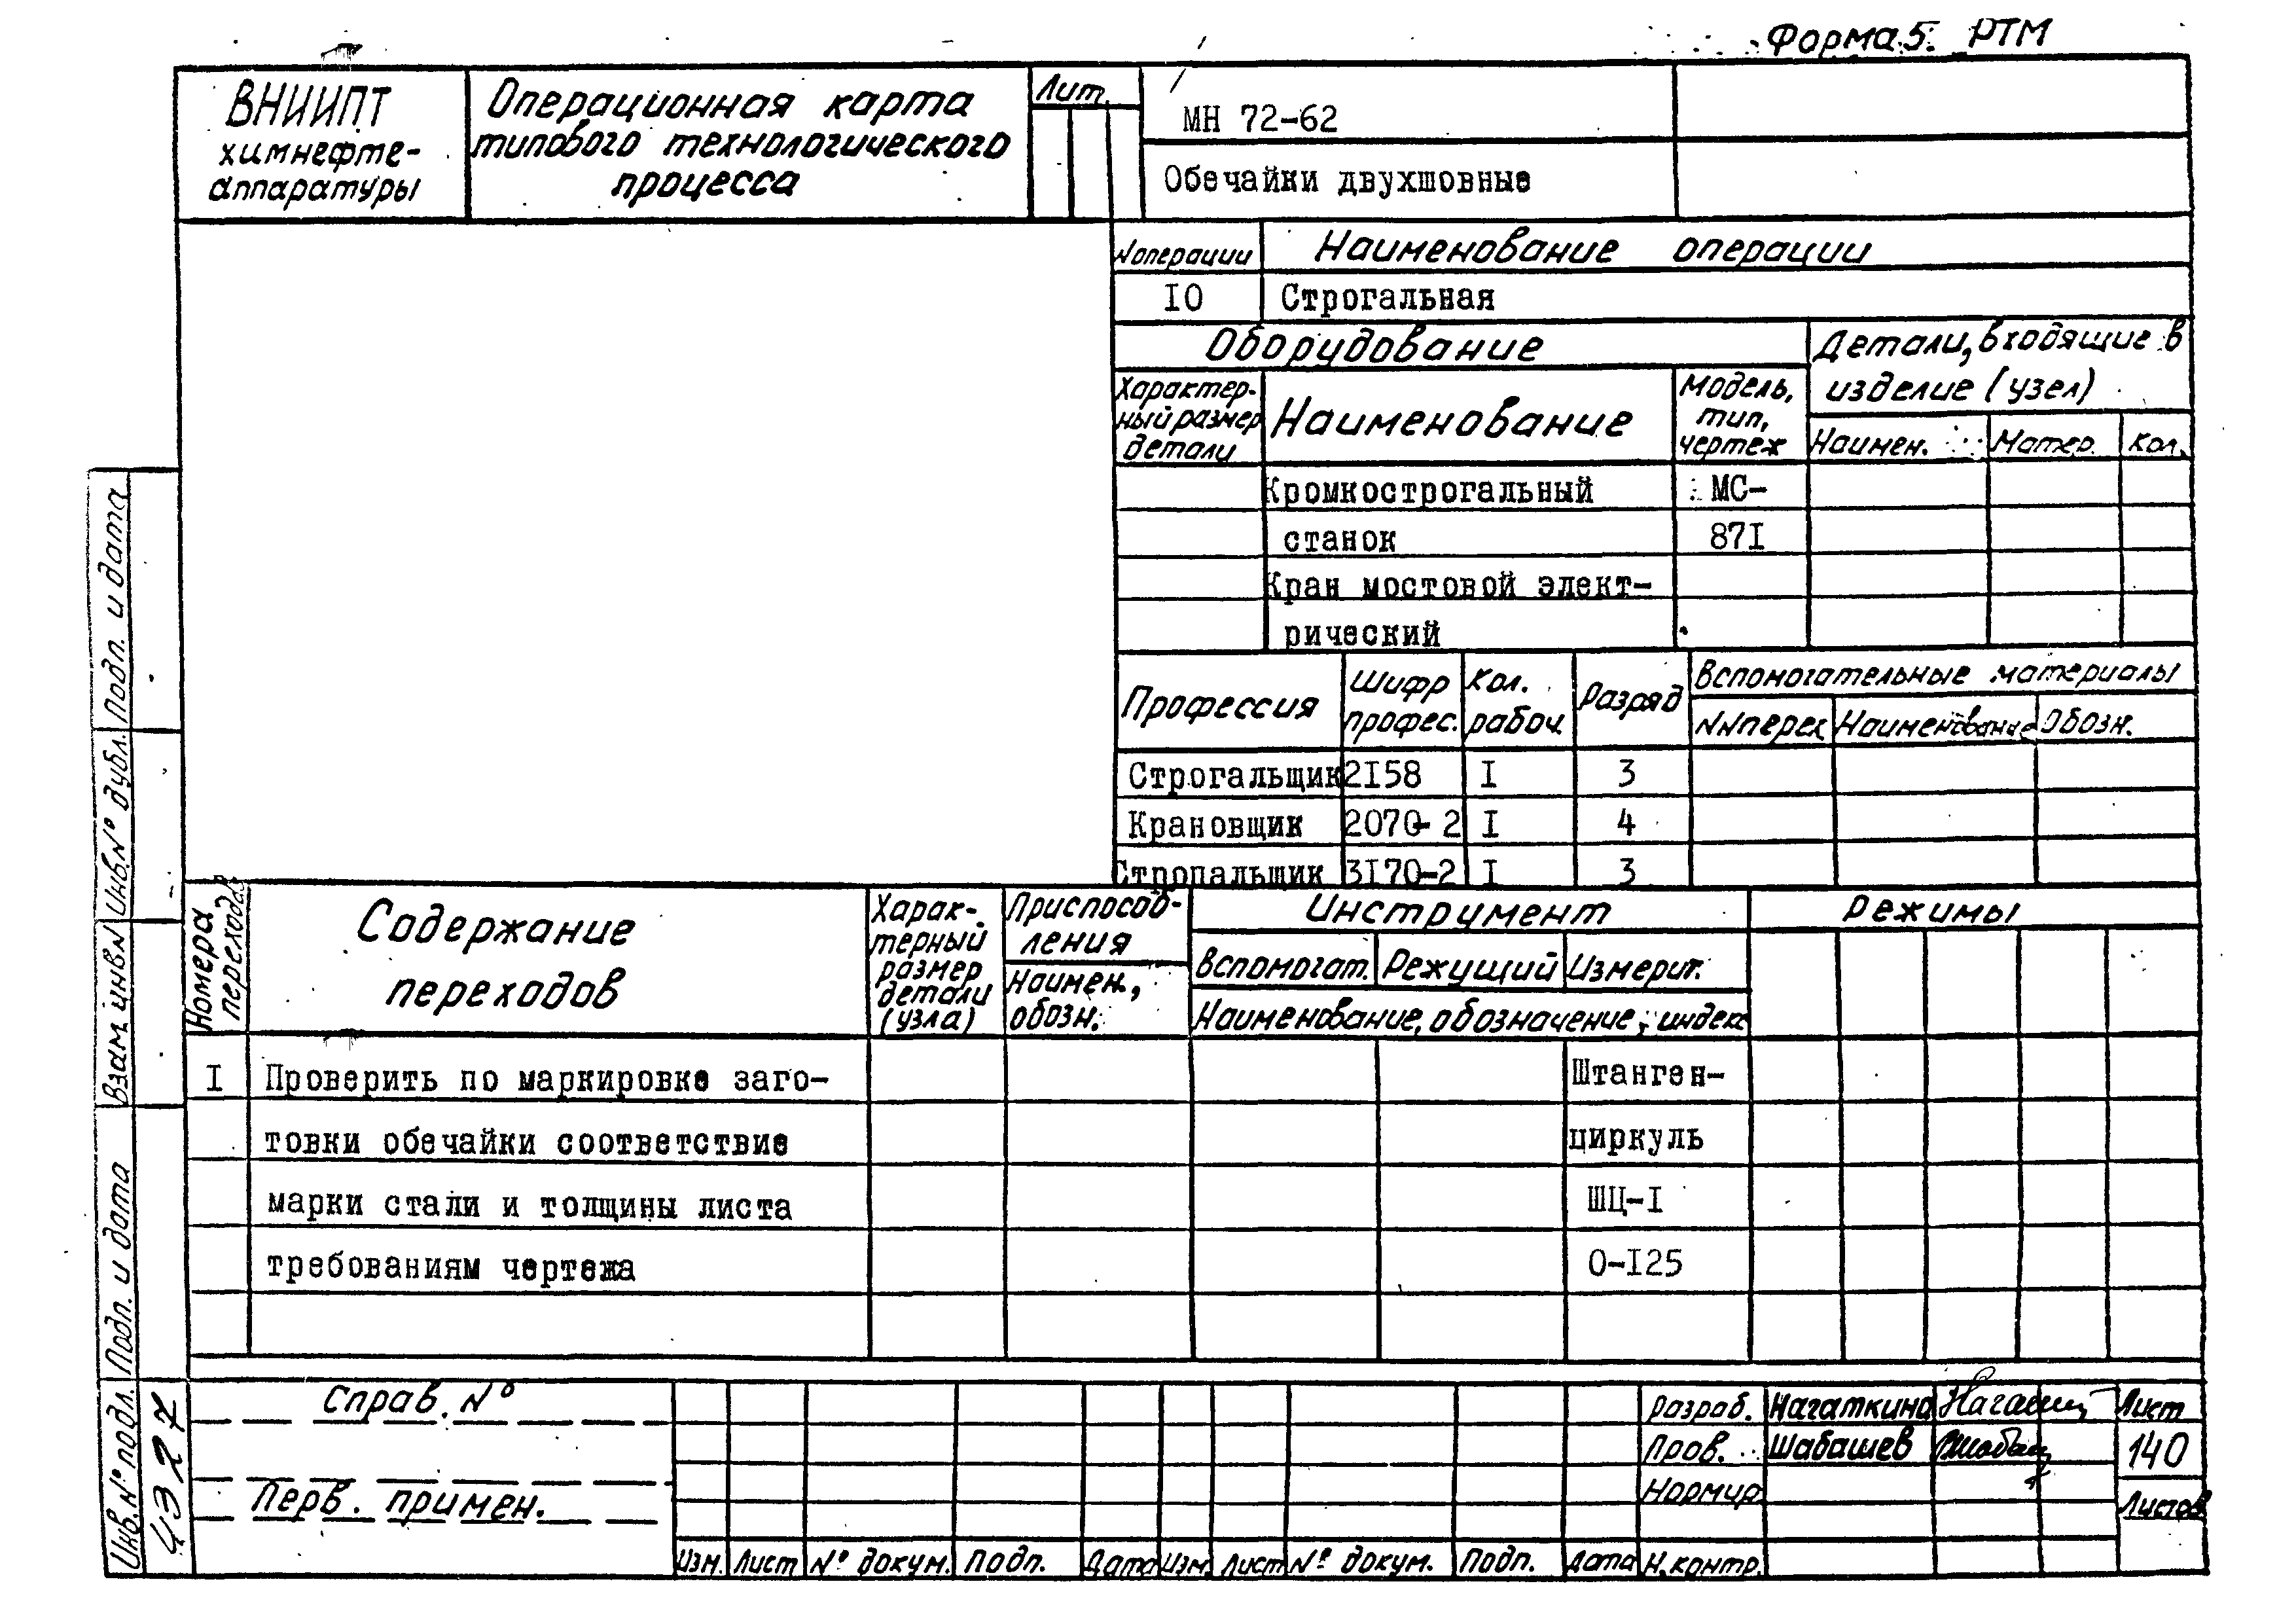 Форма 5. РТМ
ВНИИПТ
химнефте-
аппаратуры
Операционная карта
типового технологического
процесса
Лит
МН 72-62
Обечайки двухшовные
№ операции
Наименование операции
I0
Строгальная
Оборудование
Детали, входящие в
изделие (узел)
Характер-
ный размер
детали
Наименование
Модель,
тип,
чертеж
Наимен.
Матер.
Кол.
Кромкострогальный
МС-
станок
87I
Кран мостовой элект-
рический
Профессия
Шифр
профес.
Кол.
рабоч.
Разряд
Вспомогательные материалы
NN перех
Наименование
Обозн.
Строгальщик 2I58 I 3
Крановщик 2070-2 I 4
Стропальщик 3I70-2 I 3
Номера
переходов
Содержание
переходов
Харак-
терный
размер
детали
(узла)
Приспособ-
ления
Наимен.,
обозн.
Инструмент
Вспомогат.
Режущий
Измерит.
Наименование, обозначение, индекс
Режимы
I Проверить по маркировке заго-
Штанген-
товки обечайки соответствие
циркуль
марки стали и толщины листа
ШЦ-I
требованиям чертежа
0-I25
Подп. и дата
Инв. № дубл.
Взам. инв. №
Подп. и дата
Инв. № подл.
4327
Справ. №
Перв. примен.
Изм. Лист № докум. Подп. Дата Изм. Лист № докум. Подп. Дата
Разраб. Нагаткина
Пров. Шабашев
Нормир.
Н. контр.
Лист
140
Листов